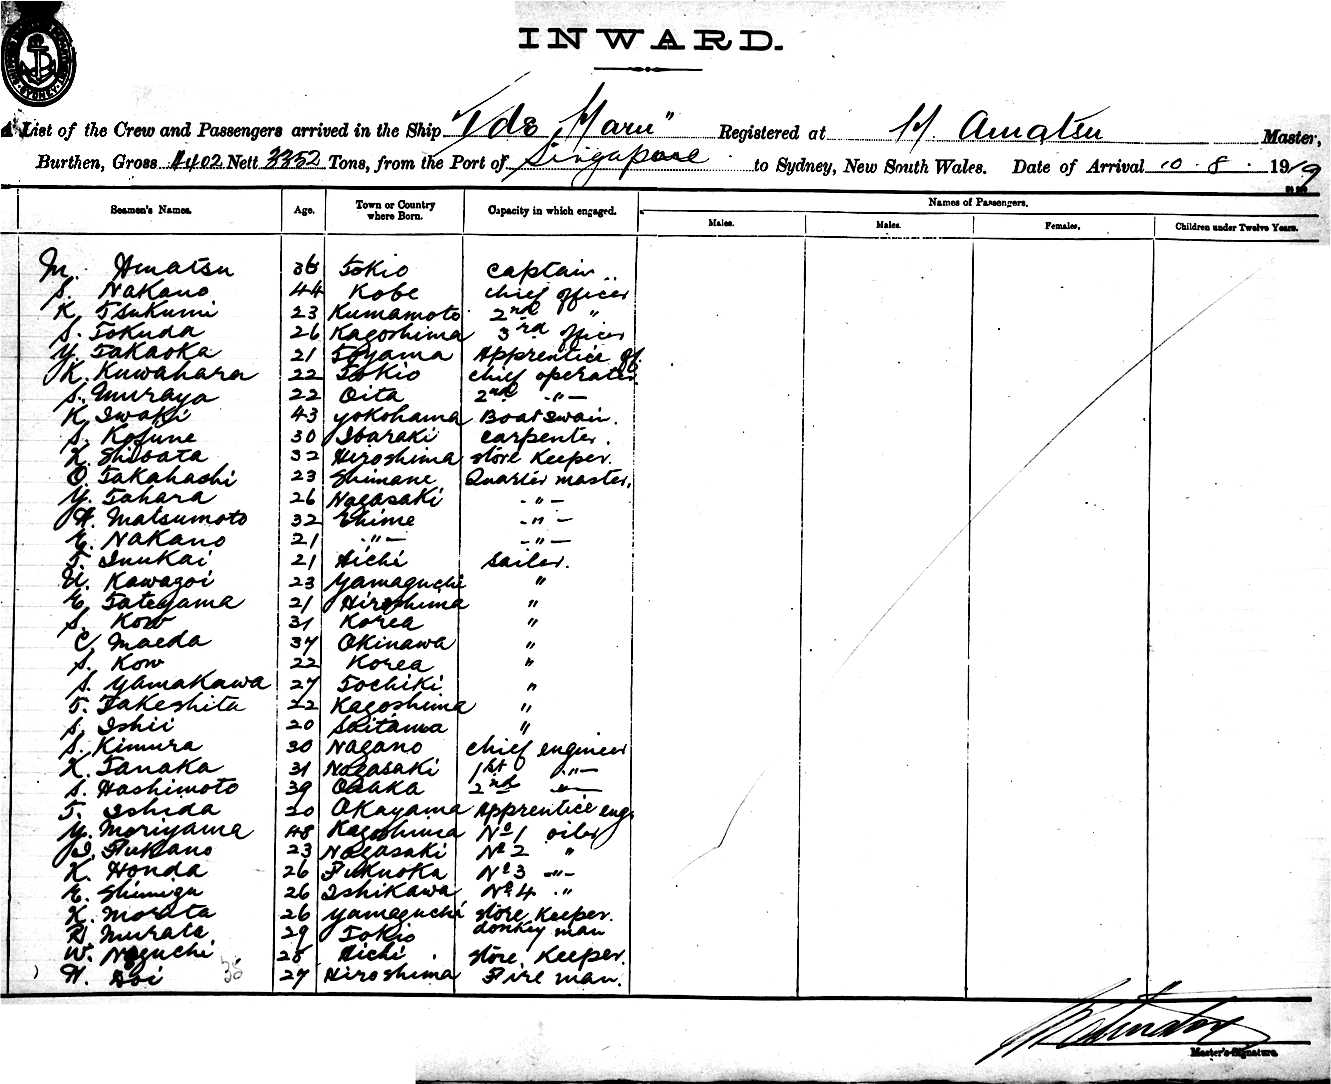 INWARD.
A List of the Crew and Passengers arrived in the Ship "Ide Maru" Registered at M. Amatsu Master,
Burthen, Gross 4402 Nett 3352 Tons, from the Port of Singapore to Sydney, New South Wales. Date of Arrival 10 . 8 . 1919
Seamen's Names. Age. Town or Country where Born. Capacity in which engaged. Names of Passengers.
Males. Males. Females. Children under Twelve Years.
M. Amatsu 36 Tokio Captain
S. Nakano 44 Kobe chief officer
K. Tsukumi 23 Kumamoto 2nd "
S. Tokuda 26 Kagoshima 3rd officer
Y. Takaoka 21 Toyama Apprentice off.
K. Kuwahara 22 Tokio chief operator
S. Muraya 22 Oita 2nd -"-
K. Iwaki 43 Yokohama Boatswain.
S. Kofune 30 Ibaraki carpenter.
K. Shibata 32 Hiroshima store keeper.
O. Takahashi 23 Shimane Quarter master.
Y. Tahara 26 Nagasaki -"-
H. Matsumoto 32 Ehime -"-
E. Nakano 21 -"- -"-
T. Inukai 21 Aichi sailor.
U. Kawagoi 23 Yamaguchi "
E. Tateyama 21 Hiroshima "
S. Kow 31 Korea "
C. Maeda 37 Okinawa "
S. Kow 22 Korea "
S. Yamakawa 27 Tochiki "
T. Takeshita 22 Kagoshima "
S. Ishii 20 Saitama "
S. Kimura 30 Nagano chief engineer
K. Tanaka 31 Nagasaki 1st -"-
S. Hashimoto 39 Osaka 2nd -"-
T. Ishida 20 Okayama Apprentice eng.
Y. Moriyama 48 Kagoshima No 1 oiler
I. Fukano 23 Nagasaki No 2 "
K. Honda 26 Fukuoka No 3 -"-
E. Shimizu 26 Ishikawa No 4 "
K. Morita 26 Yamaguchi store keeper.
R. Murata 29 Tokio donkey man
W. Noguchi 28 Aichi store keeper.
H. Doi 27 Hiroshima Fire man.
Master's Signature.